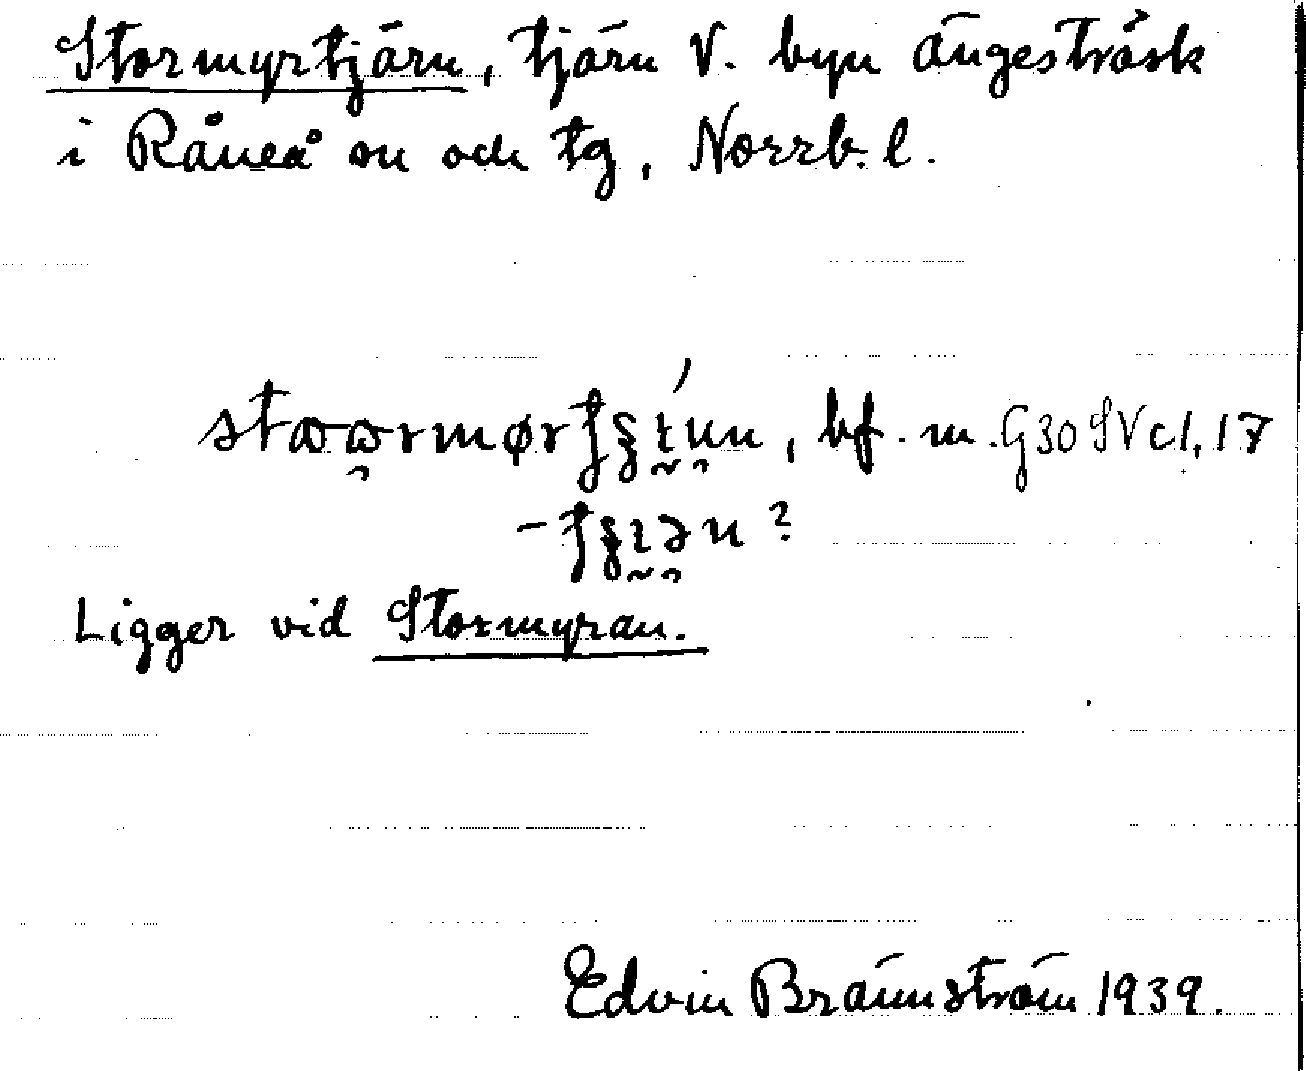 Stormyrtjärn, tjärn V. byn Ängesträsk
i Råneå sn och tg, Norrb. l.
bf. m. G30 SVc1, 17
Ligger vid Stormyran.
Edvin Brännström 1939.